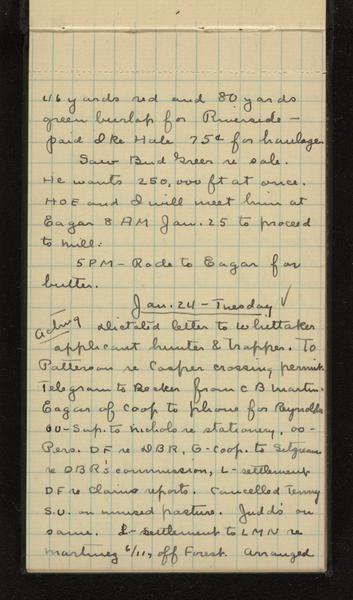 46 yards red and 80 yards
green burlap for Riverside -
paid Ike Hale 75¢ for haulage.
Saw Bud Greer re sale.
He wants 250,000 ft at once.
HOE and I will meet him at
Eagar 8 AM Jan. 25 to proceed
to mill.
5PM - Rode to Eagar for
butter.
Jan. 24 - Tuesday ✓
Dictated letter to Whittaker
applicant hunter & trapper. To
Patterson re Casper crossing permit.
Telegram to Becker from C B Martin.
Eagar of Coop to phone for Reynolds
OO-Sup. to Nichols re stationery, OO-
Pers. DF re DBR, G-Coop. to Sitgreaves
re DBR's commission, L-settlement
DF re Claims reports. Cancelled Tenny
S.U. on unused pasture. Judd's on
same. L-settlement to LMN re
Martinez 6/11, off Forest. Arranged